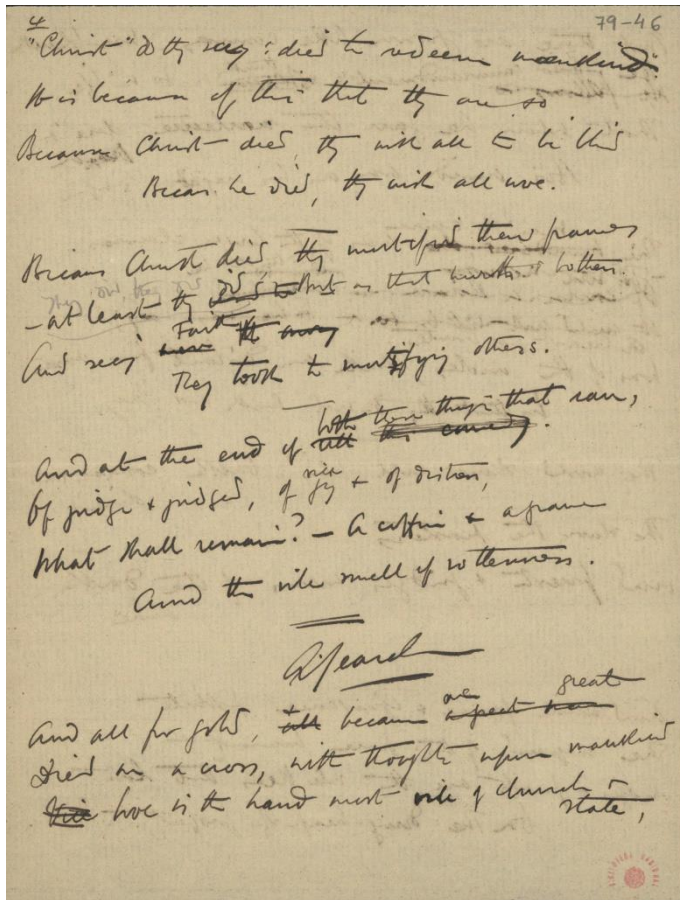 4
79-46
"Christ" do they say: died to redeem mankind".
It is because of this that they are so
Because Christ died, they wish all to be
Becaus. he died, they wish all
Becaus Christ died they mortified their frames
- at least they did so But as that hurts & bothers.
And seeing Faith
They took to mortifying others.
And at the end of all both these things that
Of judge & judged, of joy & of distress,
What shall remain? — A coffin & a grave
And the vile smell of rottenness.
And all for gold, all because one great
Died on a cross, with thoughts upon mankind
love is the hand most vile of church &
state,